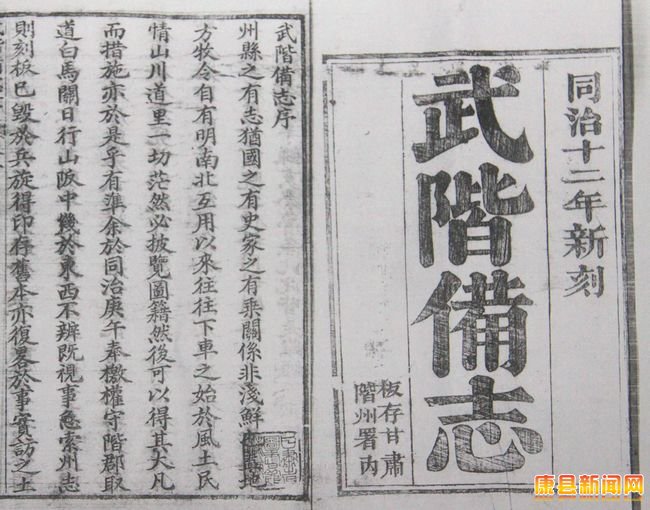 同治十二年新刻
武階備志
板存甘肅
階州署内
武階備志序
州縣之有志猶國之有史家之有乘關係非淺鮮地
方牧令自有明南北互用以來往往下車之始於風土民
情山川道里一切茫然必披覽圖籍然後可以得其大凡
而措施亦於是乎有準余於同治庚午奉檄權守階郡取
道白馬關日行山阪中幾於東西不辨既視事急索州志
則刻板已毀於兵旋得印存舊本亦復畧於事實訪之土
康县新闻网